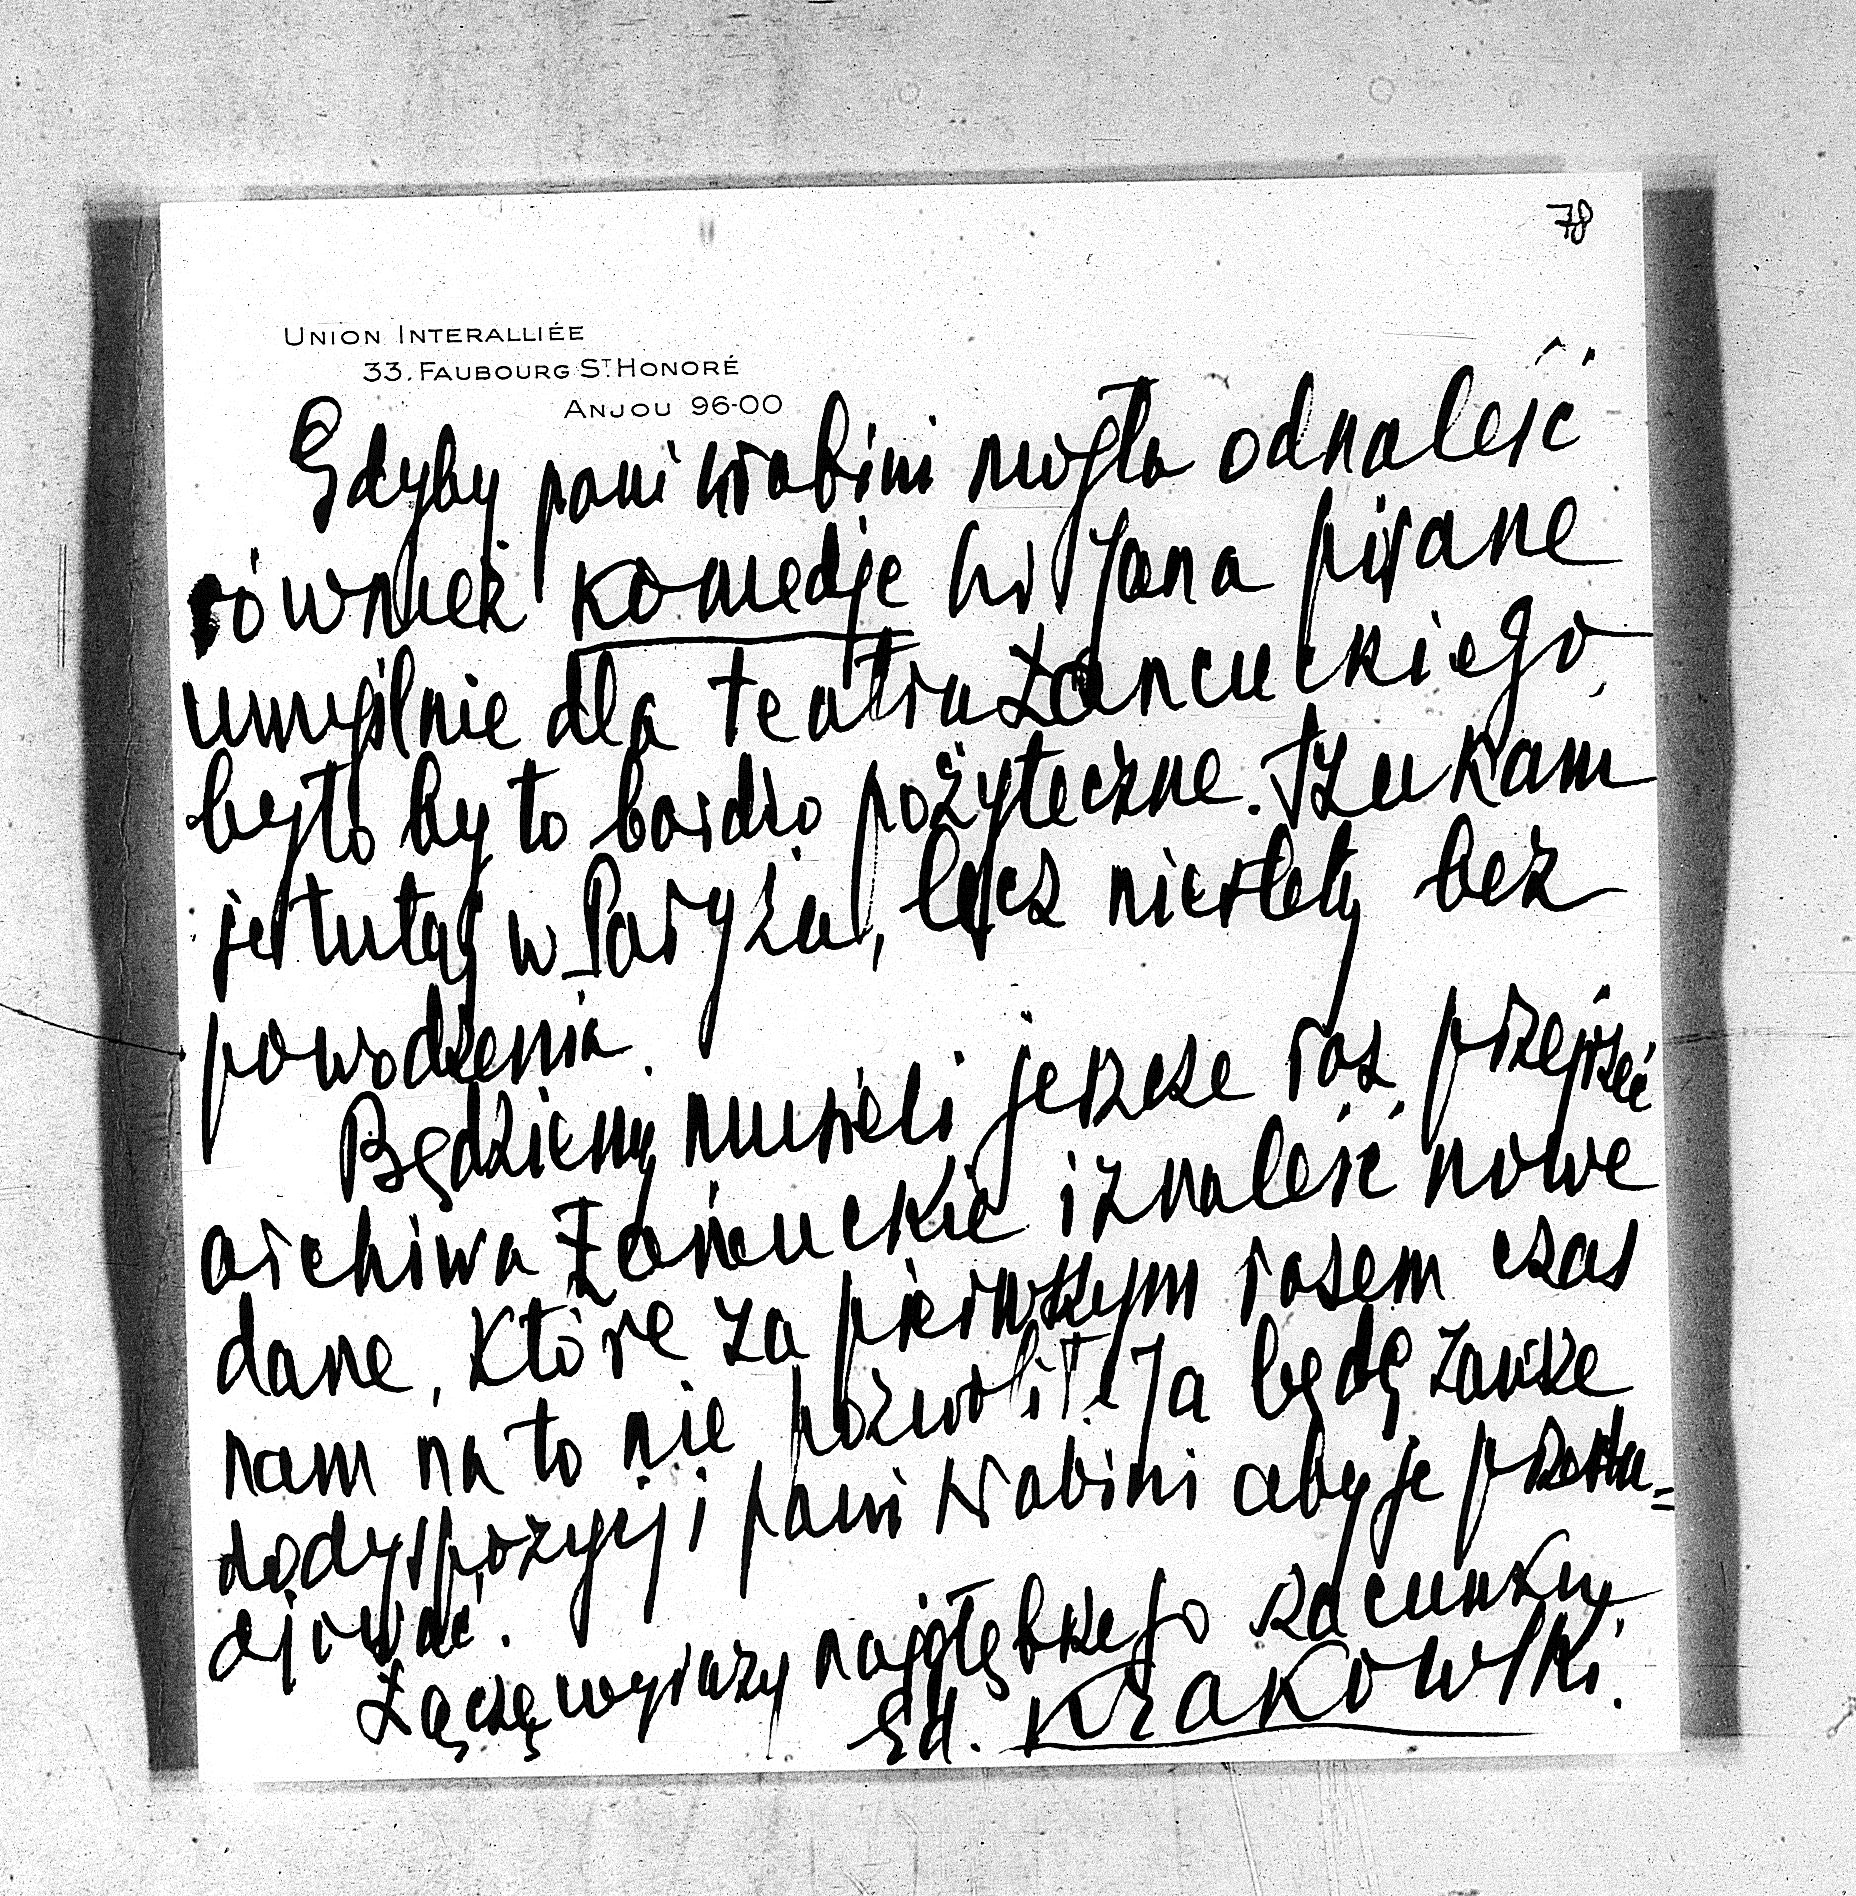 78
UNION INTERALLIÉE
33. FAUBOURG ST. HONORÉ
ANJOU 96-00
Gdyby pani hrabini mogła odnaleść
również komedje hr Jana pisane
umyślnie dla teatru Łancuckiego,
było by to bardzo pożyteczne. Szukam
je tutaj w Paryżu, lecz niestety bez
powodzenia.
Będziemy musieli jeszcze raz przejrzeć
archiwa Łańcuckie i znaleść nowe
dane, które za pierwszym razem czas
nam na to nie pozwolił. Ja będę zawsze
do dyspozycyj i pani hrabini aby je przestu=
djować.
Łączę wyrazy najgłębszego szacunku
Ed. Krakowski.